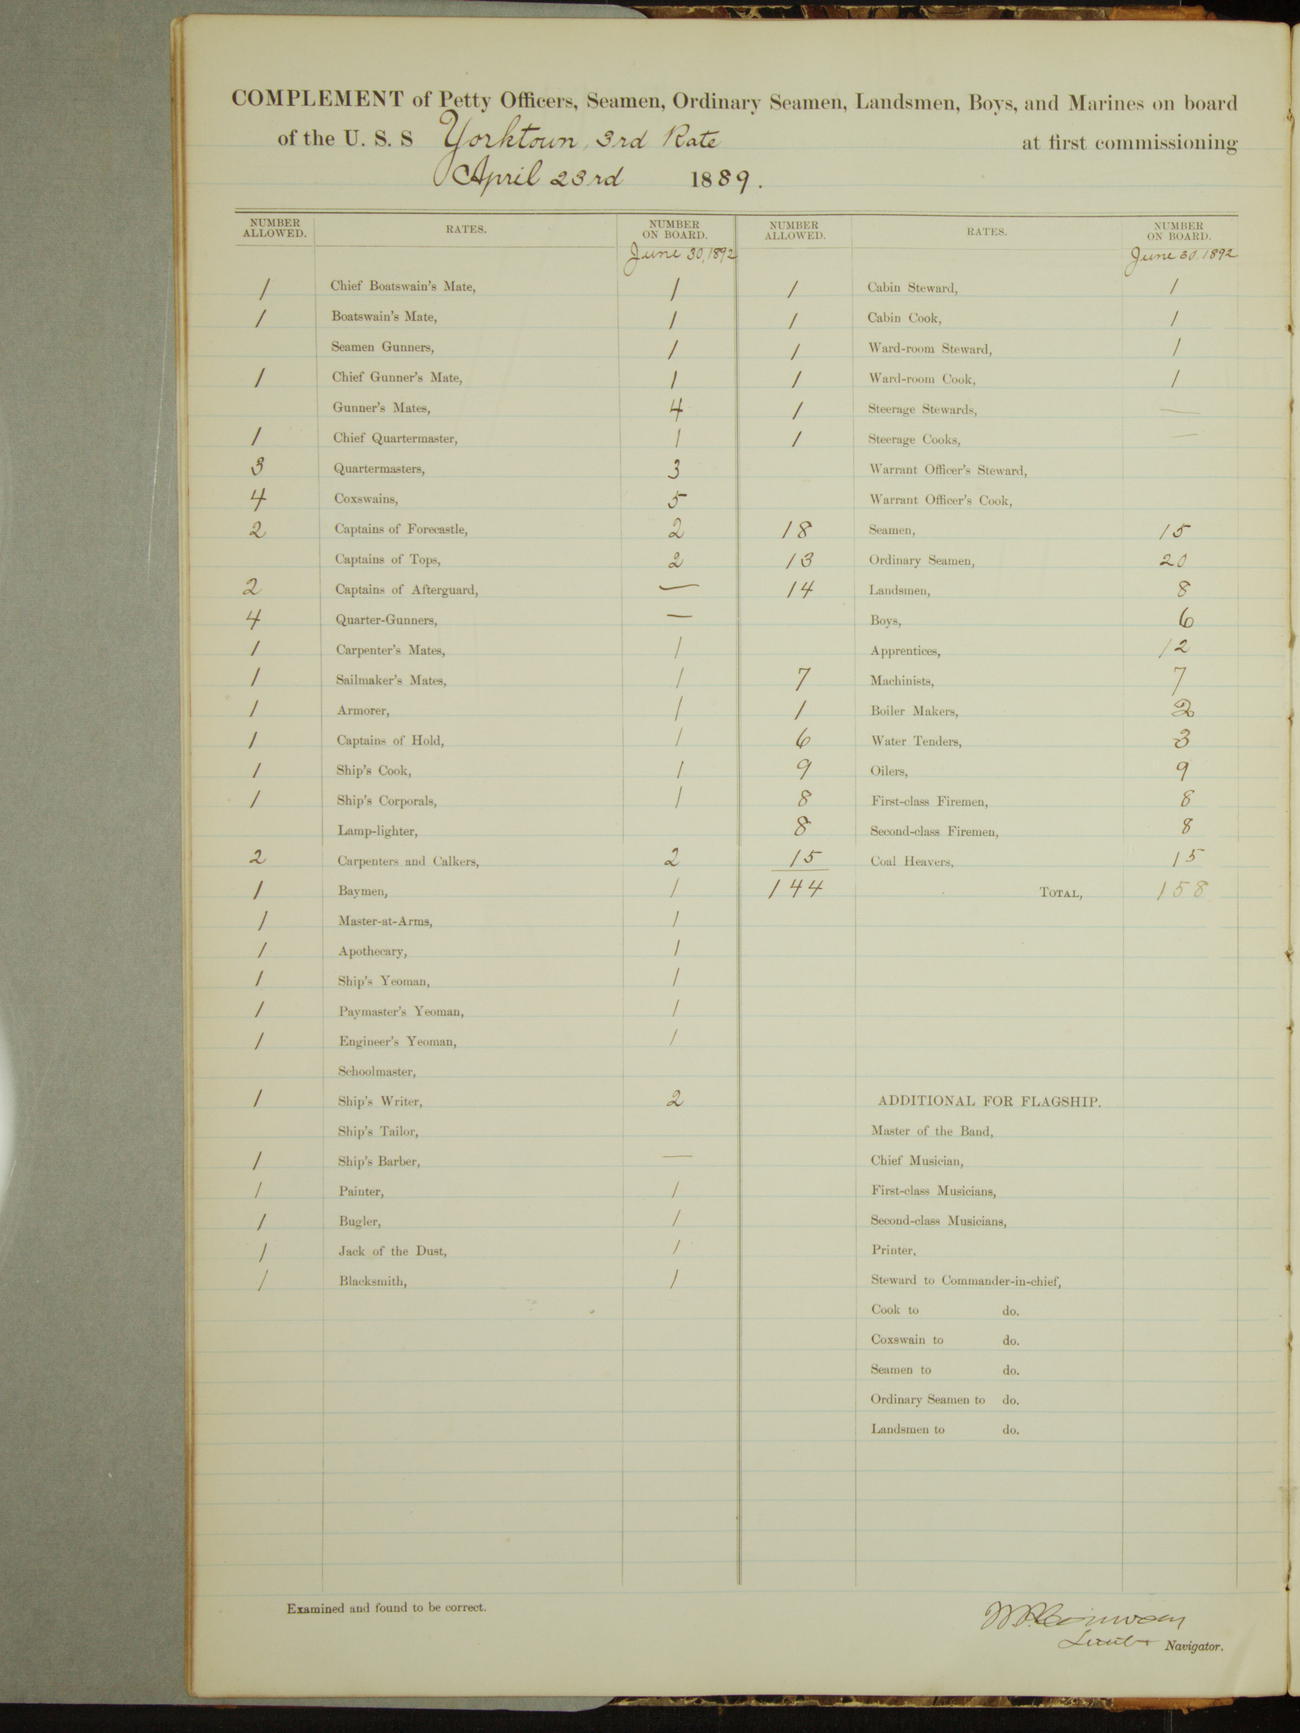 COMPLEMENT of Petty Officers, Seamen, Ordinary Seamen, Landsmen, Boys, and Marines on board
of the U. S. S Yorktown, 3rd Rate at first commissioning
April 23rd 1889.
NUMBER ALLOWED. RATES. NUMBER ON BOARD. NUMBER ALLOWED. RATES. NUMBER ON BOARD.
June 30, 1892 June 30, 1892
1 Chief Boatswain's Mate, 1 1 Cabin Steward, 1
1 Boatswain's Mate, 1 1 Cabin Cook, 1
Seamen Gunners, 1 1 Ward-room Steward, 1
1 Chief Gunner's Mate, 1 1 Ward-room Cook, 1
Gunner's Mates, 4 1 Steerage Stewards, —
1 Chief Quartermaster, 1 1 Steerage Cooks, —
3 Quartermasters, 3 Warrant Officer's Steward,
4 Coxswains, 5 Warrant Officer's Cook,
2 Captains of Forecastle, 2 18 Seamen, 15
Captains of Tops, 2 13 Ordinary Seamen, 20
2 Captains of Afterguard, — 14 Landsmen, 8
4 Quarter-Gunners, — Boys, 6
1 Carpenter's Mates, 1 Apprentices, 12
1 Sailmaker's Mates, 1 7 Machinists, 7
1 Armorer, 1 1 Boiler Makers, 2
1 Captains of Hold, 1 6 Water Tenders, 3
1 Ship's Cook, 1 9 Oilers, 9
1 Ship's Corporals, 1 8 First-class Firemen, 8
Lamp-lighter, 8 Second-class Firemen, 8
2 Carpenters and Calkers, 2 15 Coal Heavers, 15
1 Baymen, 1 144 TOTAL, 158
1 Master-at-Arms, 1
1 Apothecary, 1
1 Ship's Yeoman, 1
1 Paymaster's Yeoman, 1
1 Engineer's Yeoman, 1
Schoolmaster,
1 Ship's Writer, 2 ADDITIONAL FOR FLAGSHIP.
Ship's Tailor, Master of the Band,
1 Ship's Barber, — Chief Musician,
1 Painter, 1 First-class Musicians,
1 Bugler, 1 Second-class Musicians,
1 Jack of the Dust, 1 Printer,
1 Blacksmith, 1 Steward to Commander-in-chief,
Cook to do.
Coxswain to do.
Seamen to do.
Ordinary Seamen to do.
Landsmen to do.
Examined and found to be correct.
Navigator.